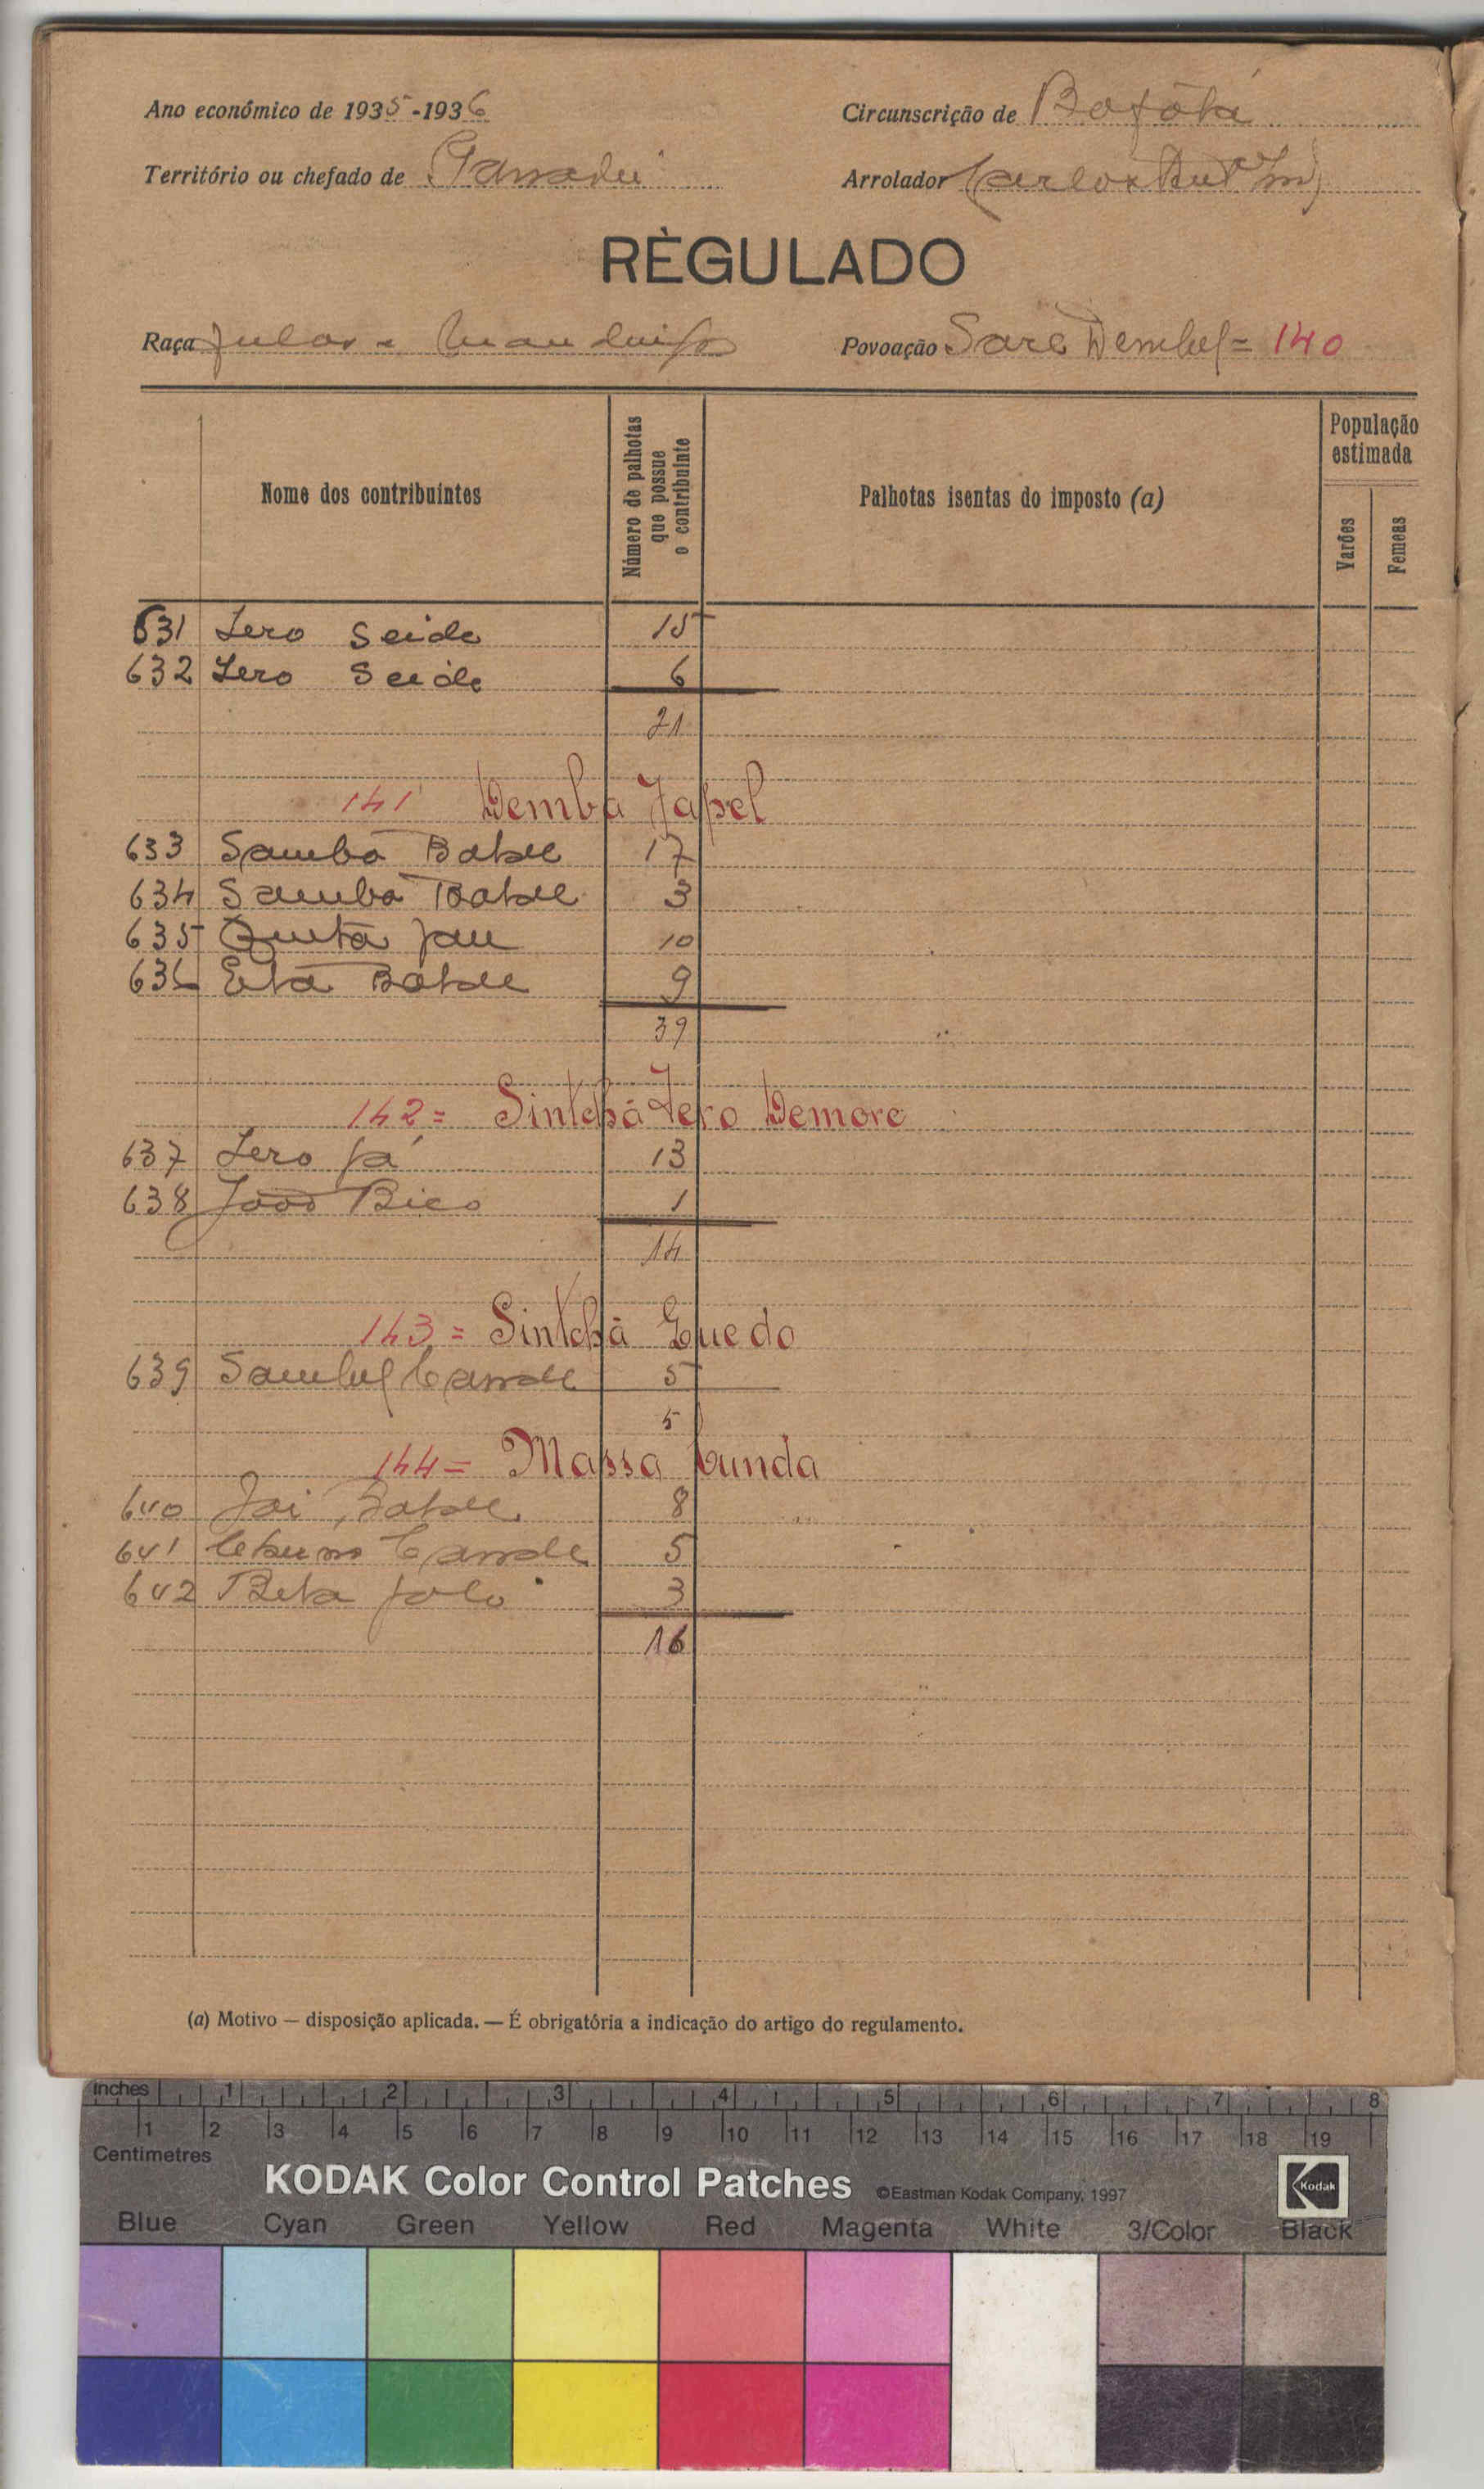 Ano económico de 1935-1936
Circunscrição de Bafatá
Território ou chefado de
Arrolador Carlos
RÈGULADO
Raça Fulas e Mandinga
Povoação Sare Dembel = 140
Nome dos contribuintes
Número de palhotas que possue o contribuinte
Palhotas isentas do imposto (a)
População estimada
Varões
Femeas
631 Lero Seide 15
632 Lero Seide 6
21
141 Demba Japel
633 Samba Balde 17
634 Samba Balde 3
635 Quita Jau 10
636 Balde 9
39
142 = Sintchã Lero Demore
637 Lero Já 13
638 João Bico 1
14
143 = Sintchã Quedo
639 Sambel Cande 5
5
144 = Massa Cunda
640 Jai Balde 8
641 Cande 5
642 Beta Jalo 3
16
(a) Motivo — disposição aplicada. — É obrigatória a indicação do artigo do regulamento.
Inches 1 2 3 4 5 6 7 8
1 2 3 4 5 6 7 8 9 10 11 12 13 14 15 16 17 18 19
Centimetres
KODAK Color Control Patches ©Eastman Kodak Company, 1997 Kodak
Blue Cyan Green Yellow Red Magenta White 3/Color Black